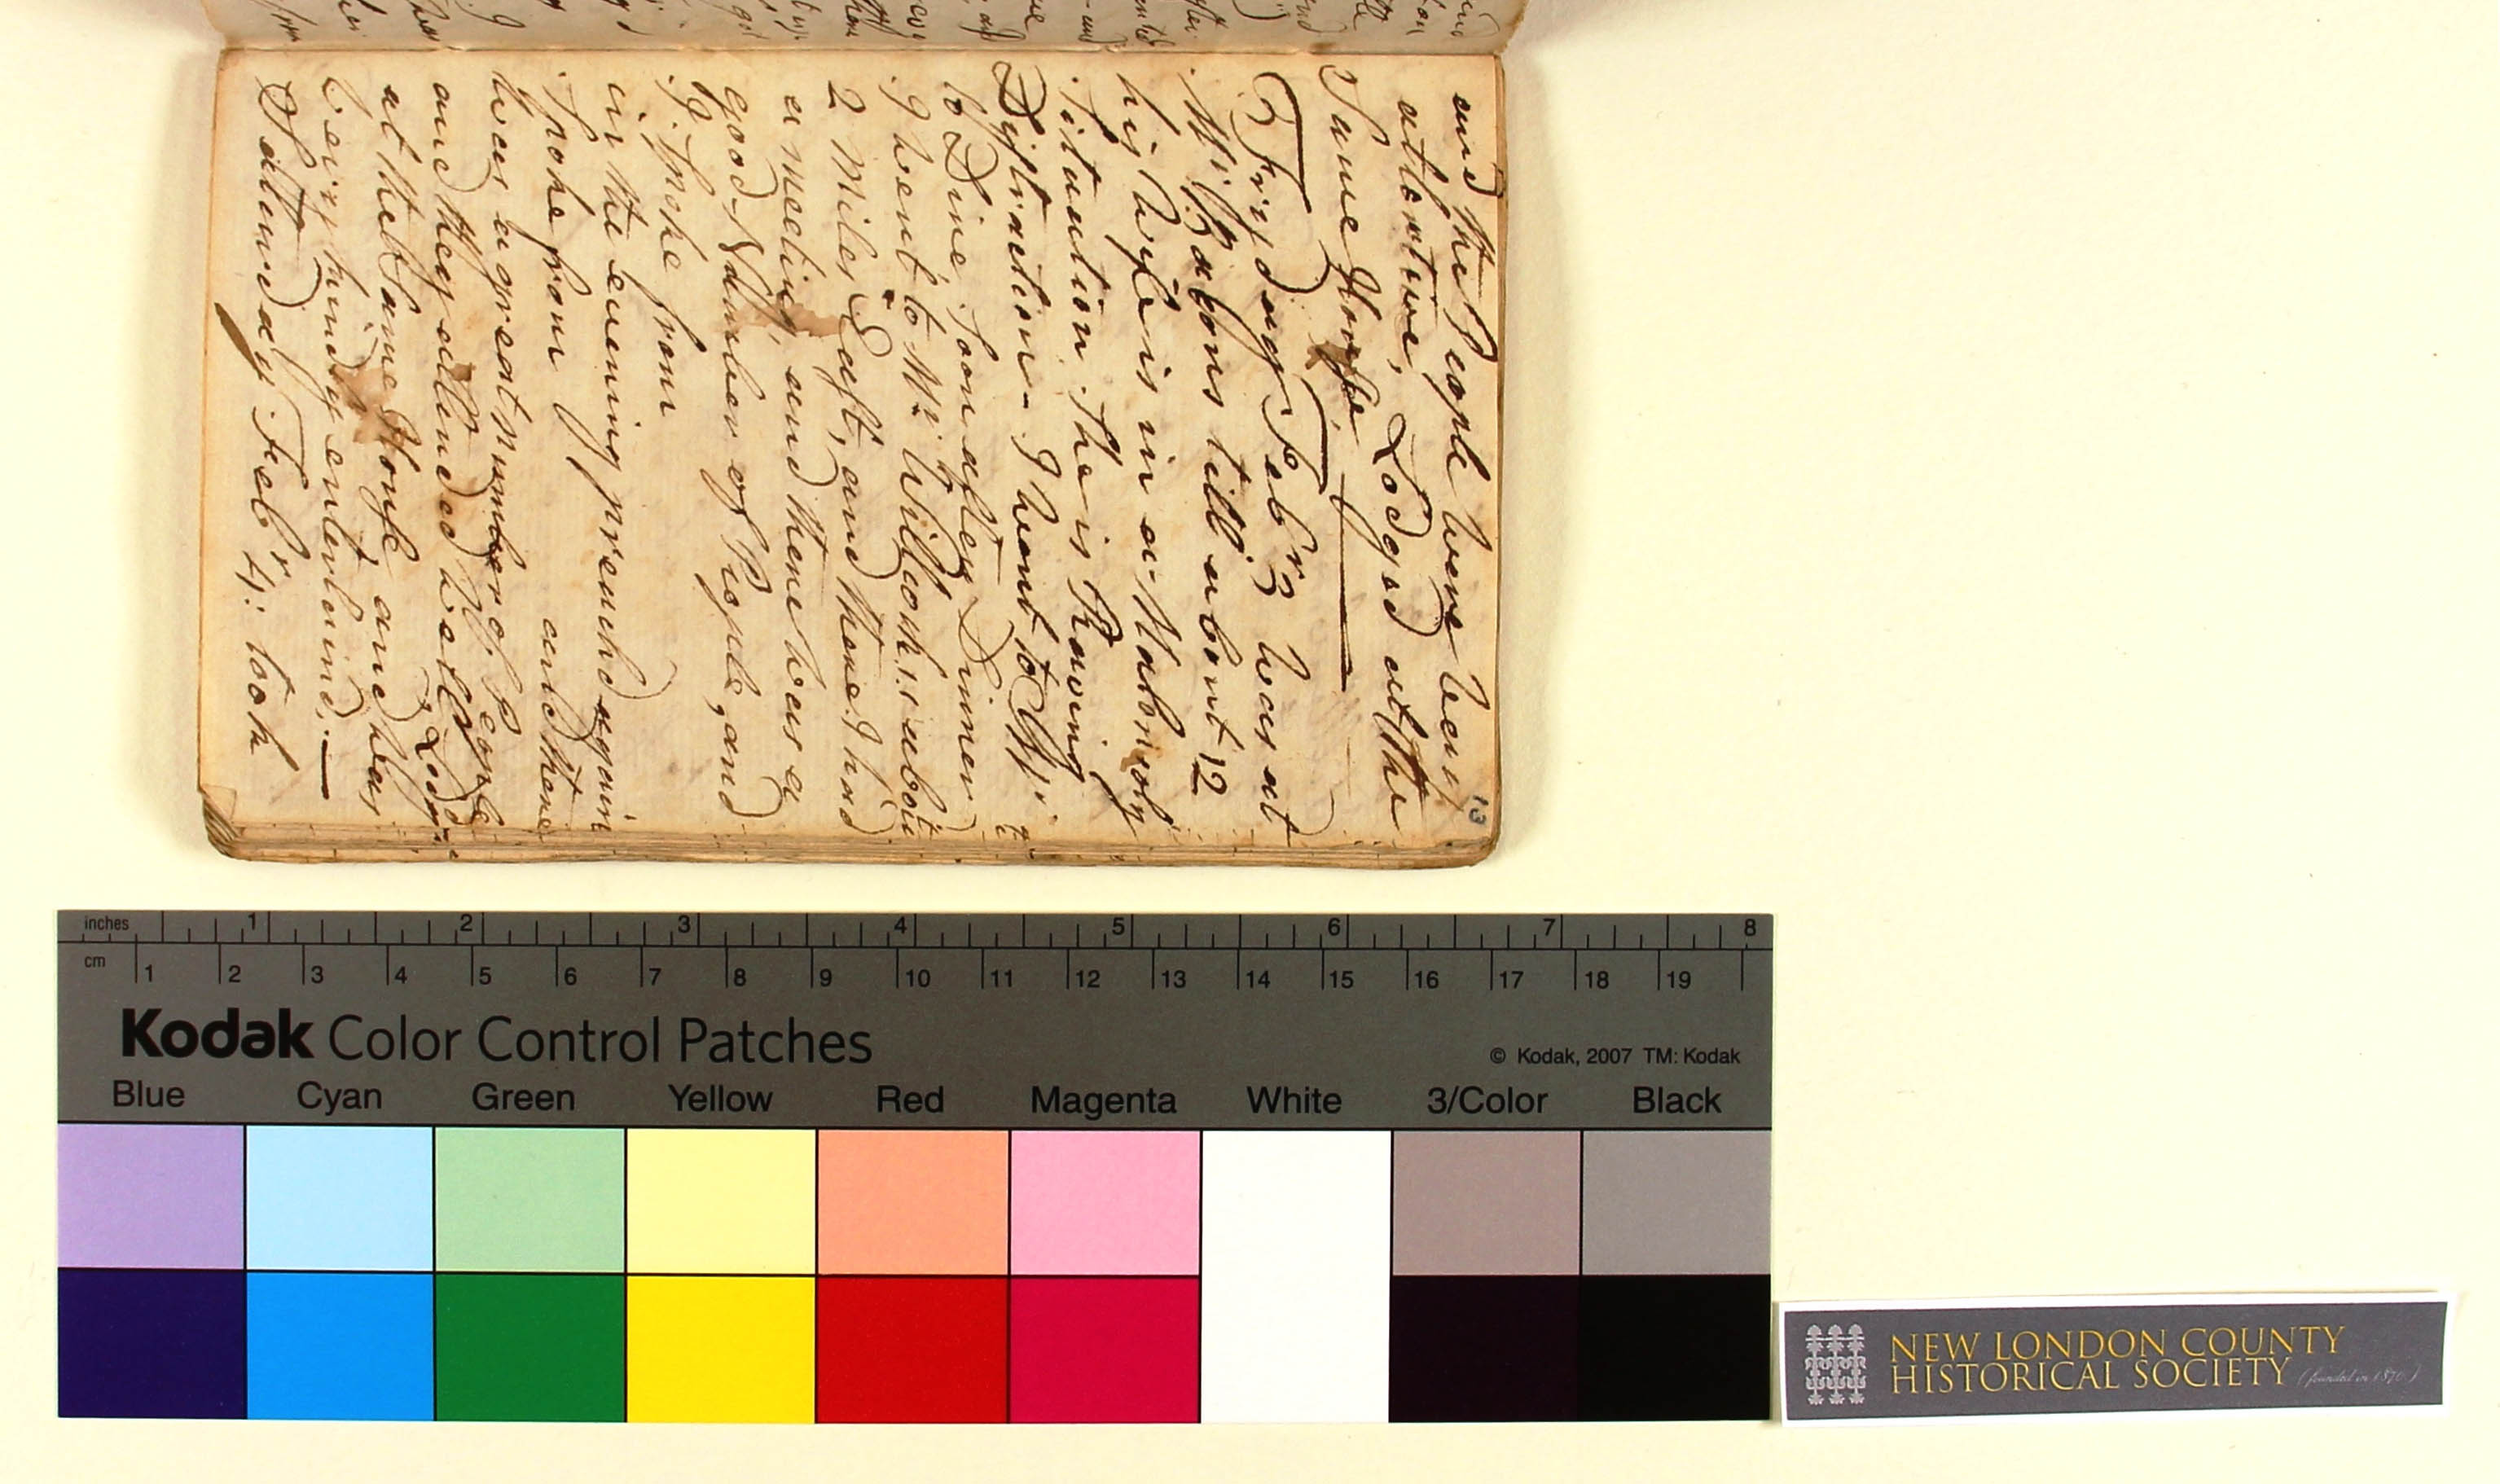 13
and the People were very
attentive, Lodged at the
Same House,
Fryday Feb^r 3 was at
M^r Babons till about 12
his Wife is in a Malancoly
Situation She is Raving
Distraction - I went to
to Dine soon after Dinner
I went to M^r Willcoks's about
2 Miles East, and there I had
a meeting, and there was a
good Number of People, and
I Spoke from
in the evening preachd again
Spoke from and there
was a great number of People
and they attended well Lodgd
at the Same House and was
very kindly entertaind. —
Satturday Feb^r 4: took
inches 1 2 3 4 5 6 7 8
cm 1 2 3 4 5 6 7 8 9 10 11 12 13 14 15 16 17 18 19
Kodak Color Control Patches
© Kodak, 2007 TM: Kodak
Blue Cyan Green Yellow Red Magenta White 3/Color Black
NEW LONDON COUNTY
HISTORICAL SOCIETY (founded in 1870)